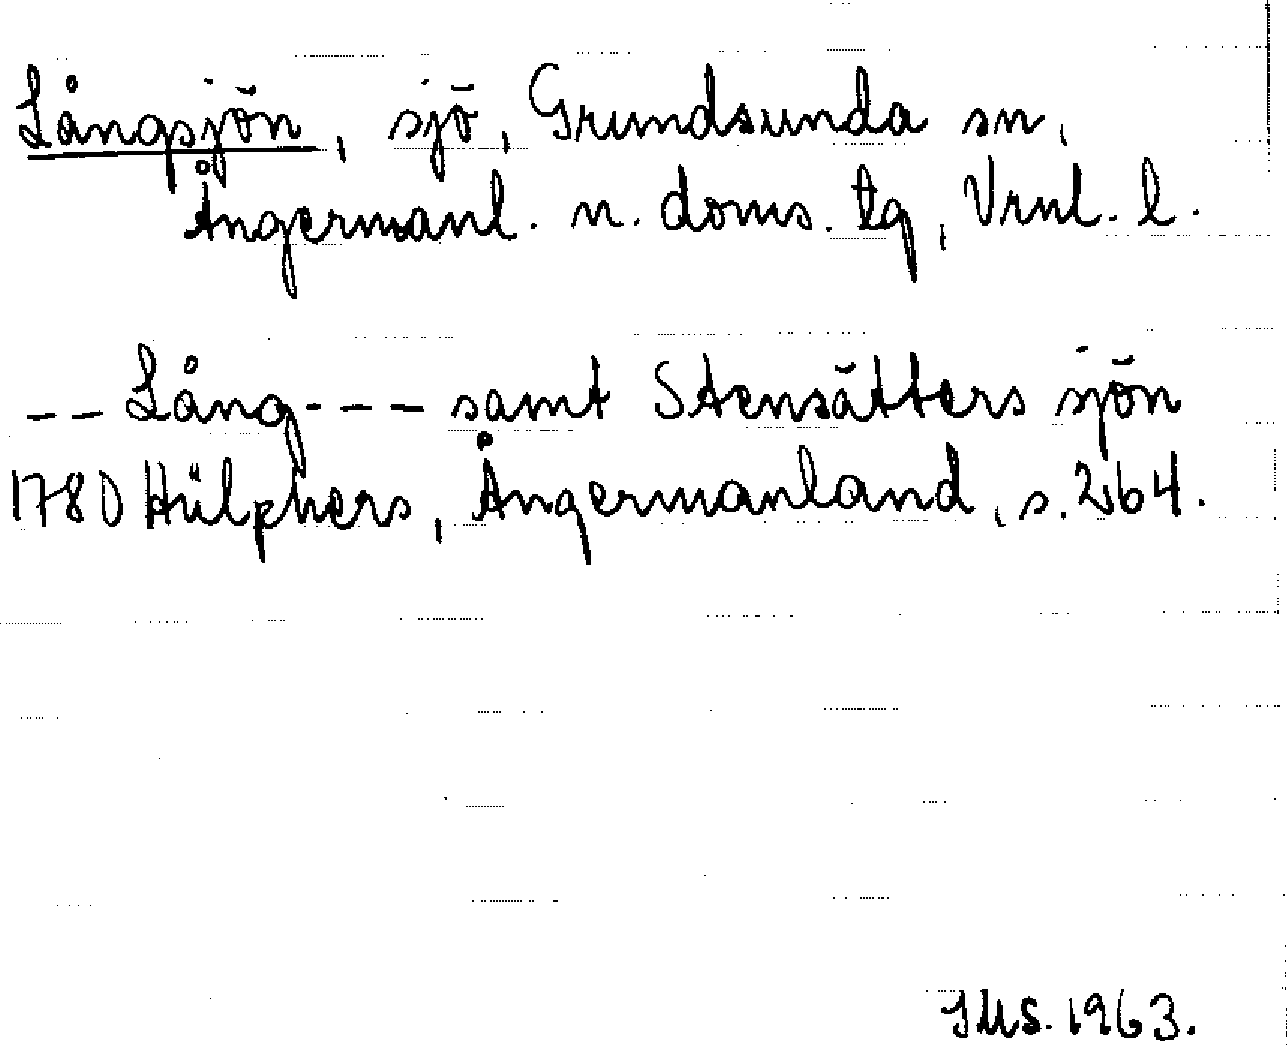 Långsjön, sjö, Grundsunda sn,
Ångermanl. n. doms. tg, Vrnl. l.
-- Lång --- samt Stensätters sjön
1780 Hülphers, Ångermanland, s. 264.
IMS. 1963.